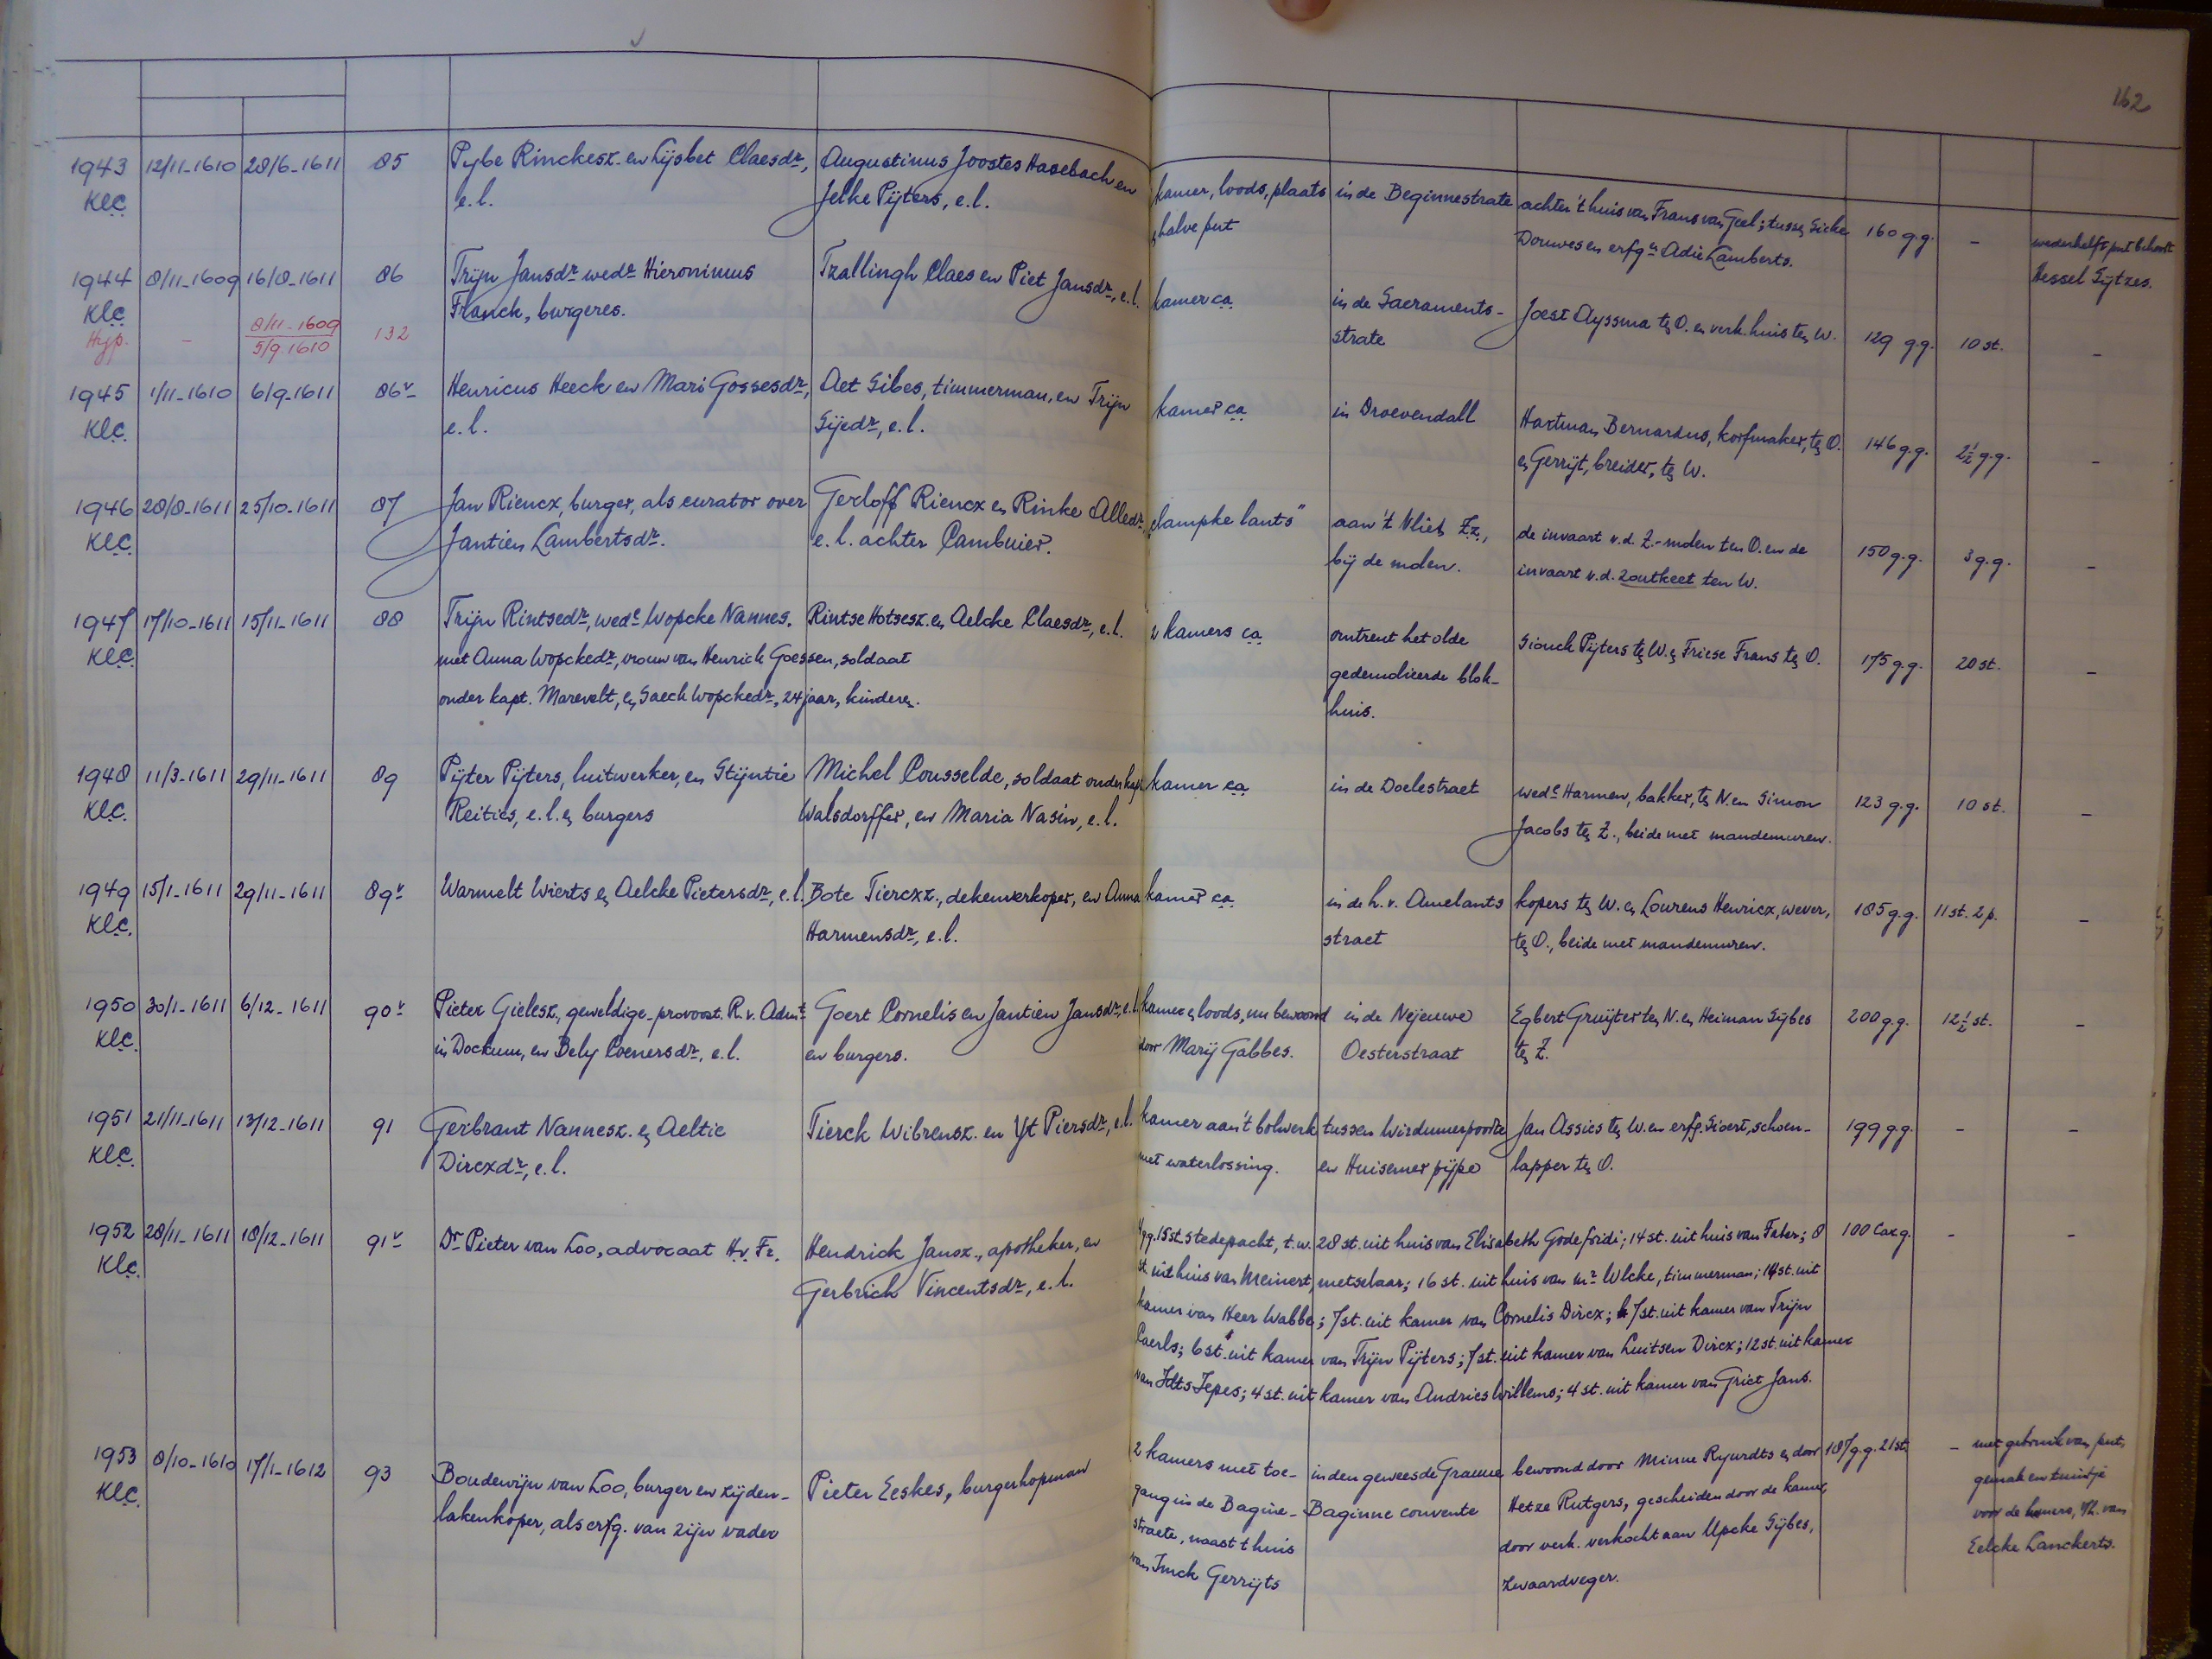 162
1943 12/11-1610 28/6-1611 85 Pybe Rinckesz. en Lijsbet Claesdr., Augustinus Joostes Hasebach en kamer, loods, plaats in de Beginnestrate achter 't huis van Frans van Geel; tussen Sicke 160 g.g. - wederhelft put behoort
KLC. e.l. Jelke Pijters, e.l. & halve put Douwes en erfgn Adie Lamberts. Hessel Sijtzes.
1944 8/11-1609 16/8-1611 86 Trijn Jansdr. wedr. Hieronimus Tzallingh Claes en Piet Jansdr., e.l. kamer ca. in de Sacraments- Joest Ayssma ten O. en verk. huis ten W. 129 g.g. 10 st. -
KLC. Franck, burgeres. strate
Hyp. - 8/11-1609 132
5/9.1610
1945 1/11-1610 6/9-1611 86v Henricus Heeck en Mari Gossesdr., Aet Sibes, timmerman, en Trijn kamer ca. in Droevendall Hartman Bernardus, korfmaker, ten O. 146 g.g. 2½ g.g. -
KLC. e.l. Sijedr., e.l. en Gerrijt, breider, ten W.
1946 28/8-1611 25/10-1611 87 Jan Riencx, burger, als curator over Gerloff Riencx en Rinke Alledr., "clampke lants" aan 't Vliet Z.z., de invaart v.d. Z.-molen ten O. en de 150 g.g. 3 g.g. -
KLC. Jantien Lambertsdr. e.l. achter Cambuier. bij de molen. invaart v.d. Zoutkeet ten W.
1947 17/10-1611 15/11-1611 88 Trijn Rintsedr., wede Wopcke Nannes. Rintse Hotsesz. en Aelcke Claesdr., e.l. 2 kamers ca. omtrent het olde Sionck Pijters ten W. en Friese Frans ten O. 175 g.g. 20 st. -
KLC. met Anna Wopckedr., vrouw van Henrick Goessen, soldaat gedemolieerde blok-
onder kapt. Marevelt, en Saeck Wopckedr., 24 jaar, kinderen. huis.
1948 11/3-1611 29/11-1611 89 Pijter Pijters, luitwerker, en Stijntie Michel Cousselde, soldaat onder kapt. kamer ca. in de Doelestraet wede Harmen, bakker, ten N. en Simon 123 g.g. 10 st. -
KLC. Reities, e.l. en burgers Walsdorffer, en Maria Nasin, e.l. Jacobs ten Z., beide met mandemuren.
1949 15/1-1611 29/11-1611 89v Warmelt Wierts en Aelcke Pietersdr., e.l. Bote Tiercxz., dekenverkoper, en Anna kamer ca. in de h. v. Amelants kopers ten W. en Lourens Henricx, wever, 185 g.g. 11 st. 2 p. -
KLC. Harmensdr., e.l. straet ten O., beide met mandemuren.
1950 30/1-1611 6/12-1611 90v Pieter Gielesz., geweldige-provoost. R. v. Admt. Goert Cornelis en Jantien Jansdr., e.l. kamer en loods, nu bewoond in de Nejeuwe Egbert Gruijter ten N. en Heiman Sijbes 200 g.g. 12½ st. -
KLC. in Dockum, en Bely Coenersdr., e.l. en burgers. door Marij Gabbes. Oesterstraat ten Z.
1951 21/11-1611 13/12-1611 91 Gerbrant Nannesz. en Aeltie Tierck Wibrensz. en Yt Piersdr., e.l. kamer aan 't bolwerk tussen Wirdumerpoorte Jan Assies ten W. en erfg. Sioert, schoen- 199 g.g. - -
KLC. Dircxdr., e.l. met waterlossing. en Huisemer pijpe lapper ten O.
1952 28/11-1611 18/12-1611 91v Dr. Pieter van Loo, advocaat H.v. Fr. Hendrick Jansz., apotheker, en 4 gg. 15 st. stedepacht, t.w. 28 st. uit huis van Elisabeth Godefridi; 14 st. uit huis van Fater; 8 100 Car g. - -
KLC. Gerbrich Vincentsdr., e.l. st. uit huis van Meinert, metselaar; 16 st. uit huis van mr. Wlcke, timmerman; 14 st. uit
kamer van Heer Wabbe; 7 st. uit kamer van Cornelis Dircx; 7 st. uit kamer van Trijn
Caerls; 6 st. uit kamer van Trijn Pijters; 7 st. uit kamer van Luitsen Dircx; 12 st. uit kamer
van Jepes; 4 st. uit kamer van Andries Willems; 4 st. uit kamer van Griet Jans.
1953 8/10-1610 17/1-1612 93 Boudewijn van Loo, burger en zijden- Pieter Eeskes, burgerhopman 2 kamers met toe- in den geweesde Graeuwe bewoond door Minne Ryurdts en door 187 g.g. 21 st. - met gebruik van put,
KLC. lakenkoper, als erfg. van zijn vader gang in de Bagine- Baginne convente Hetze Rutgers, gescheiden door de kamer, gemak en tuintje
straete, naast t huis door verk. verkocht aan Upcke Sijbes, voor de kamers, van
van Imck Gerrijts zwaardveger. Eelcke Lanckerts.